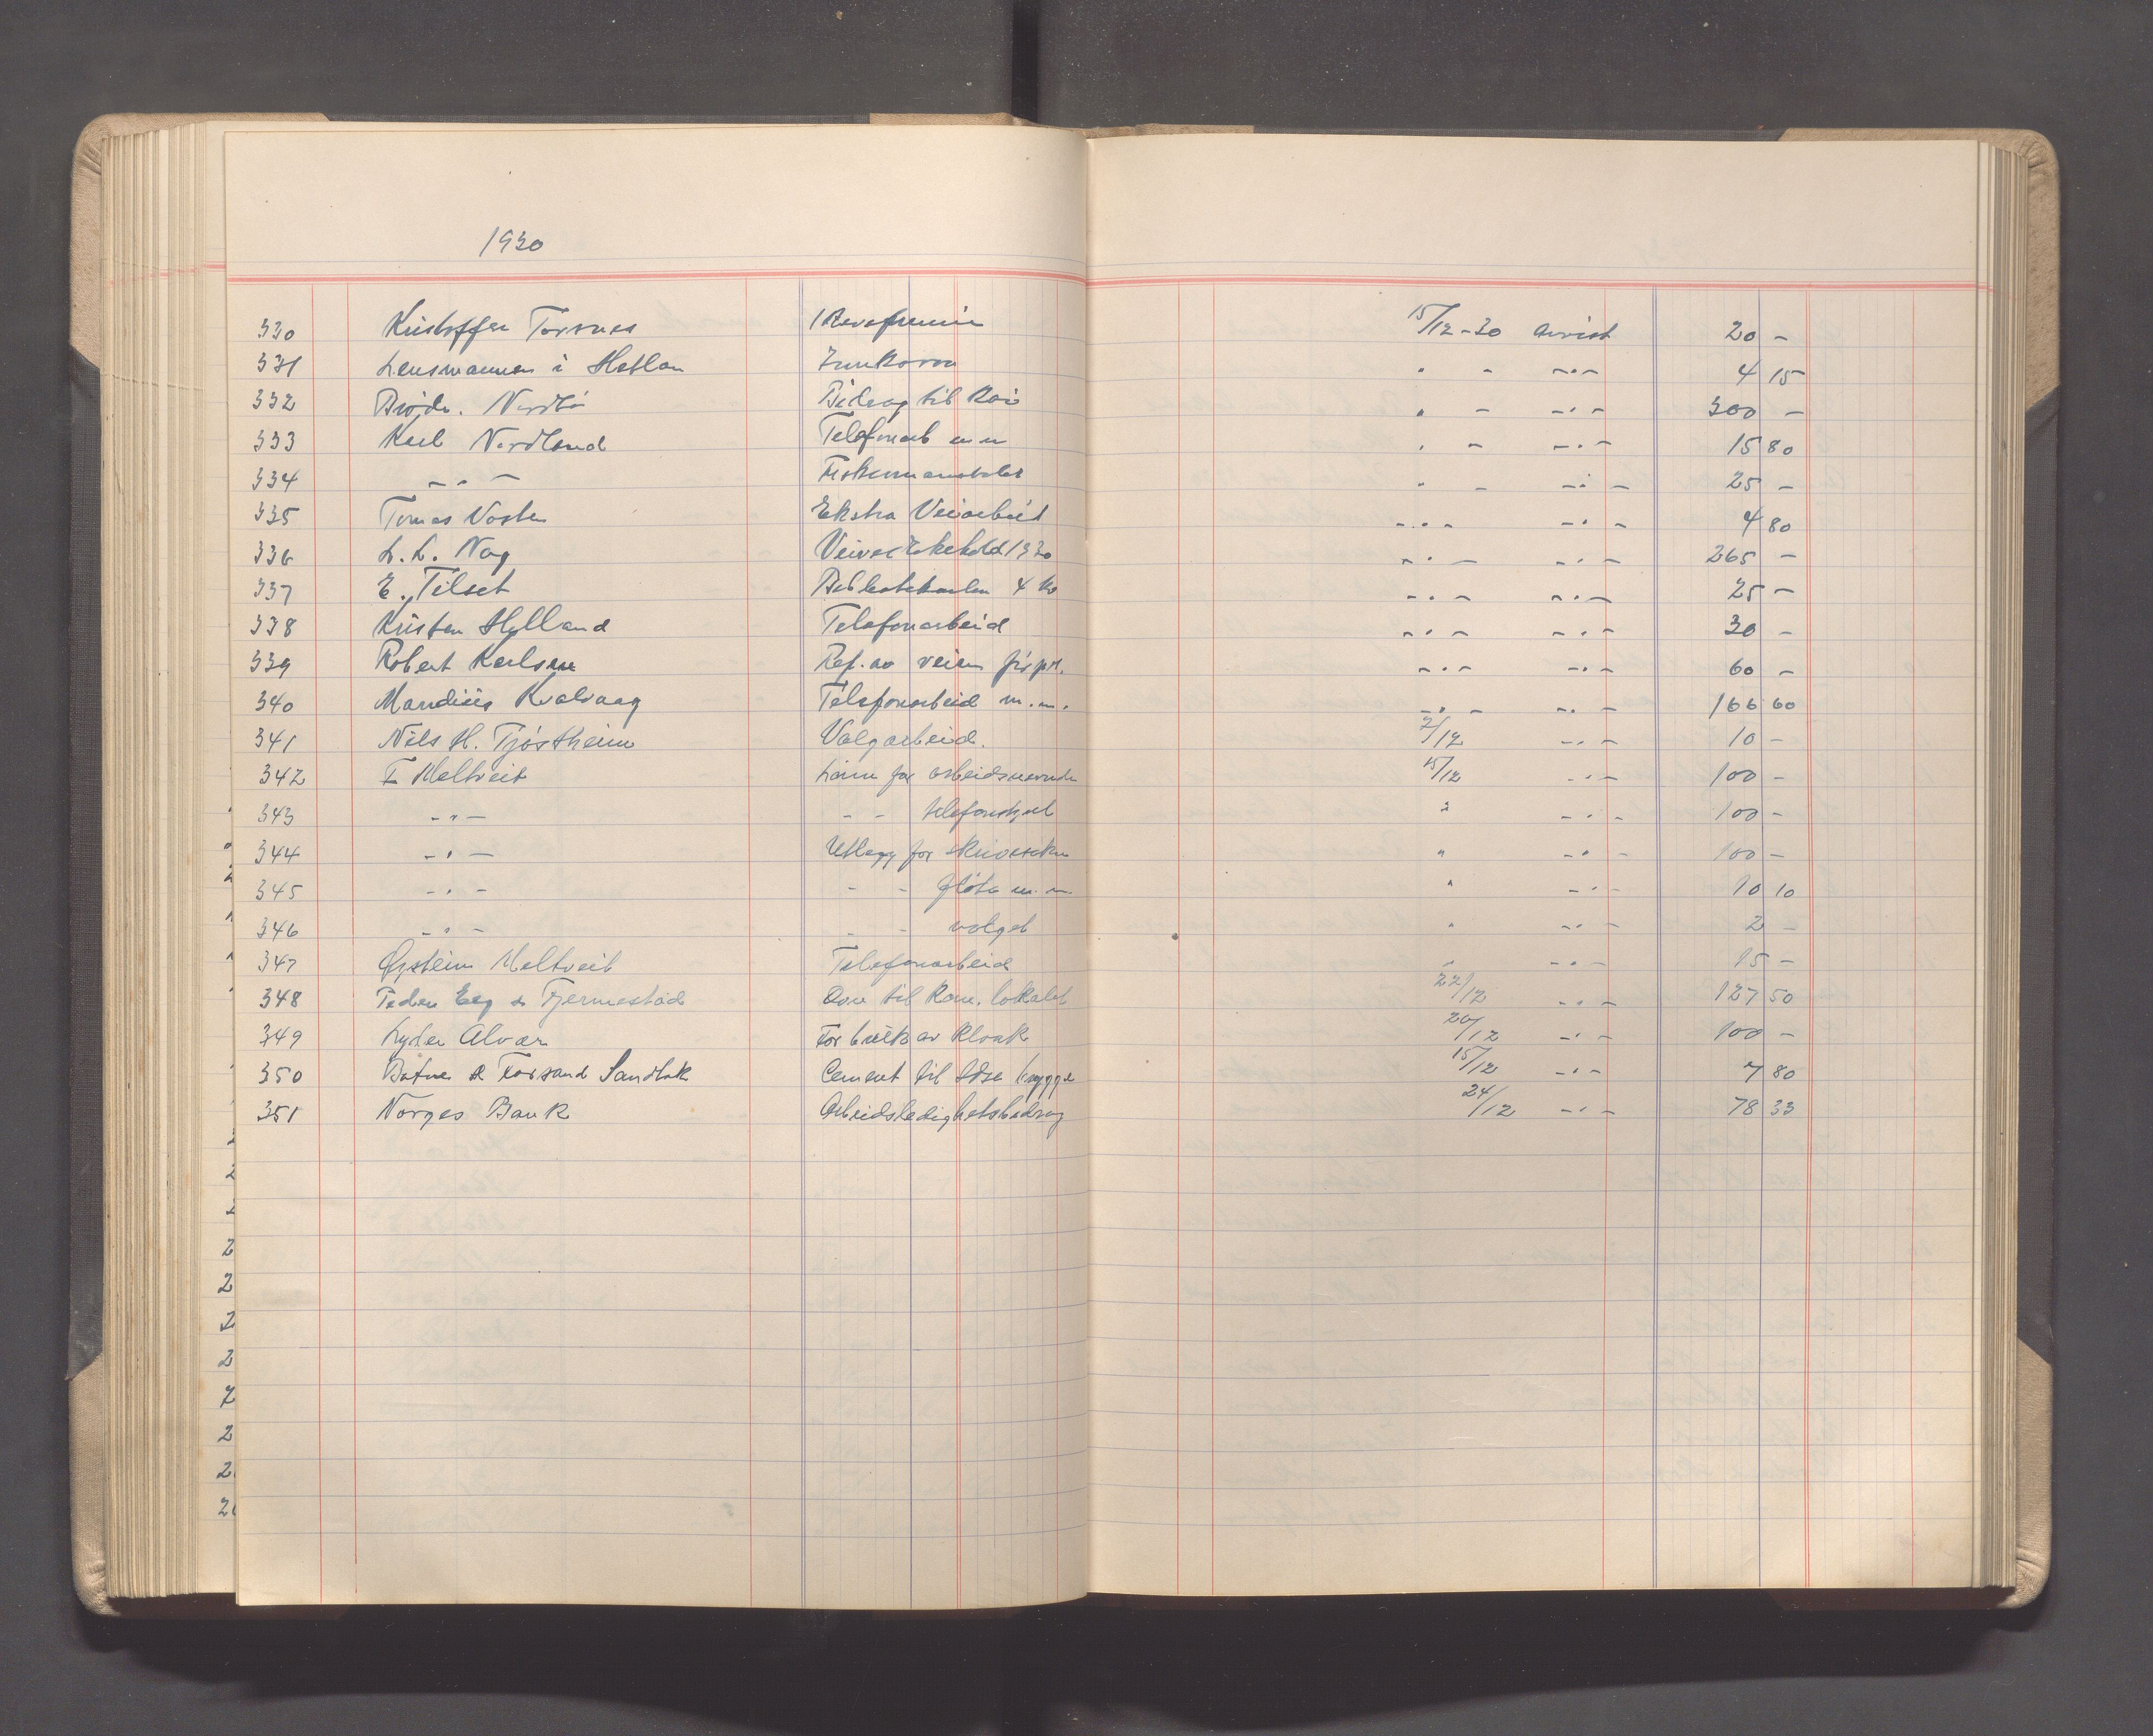 1930
330 Kristoffer Torsnes 1 Revepremie 15/12-30 anvist 20 -
331 Lensmannen i Hetlan 4 15
332 Brødr. Nordbø Bidrag til Kai " - -"- 300 -
333 Karl Nordland Telefonarb m m " - -"- 15 80
334 -"- " - -"- 25 -
335 Tomas Ekstra Veiarbeid -"- -"- 4 80
336 L. L. Nag 1930 -"- -"- 265 -
337 E. Tilset 4 -"- -"- 25 -
338 Kristen Hylland Telefonarbeid -"- -"- 30 -
339 Robert Karlsen Rep. av veien -"- -"- 60 -
340 Mandius Kvalvaag Telefonarbeid m.m. -"- -"- 166 60
341 Nils H. Tjøstheim Valgarbeid. 2/12 -"- 10 -
342 I Meltveit Lønn for arbeidsnevnda 15/12 -"- 100 -
343 -"- - - telefonstyret " -"- 100 -
344 -"- Utlegg for skrivesaker " -"- 100 -
345 -"- - - m.m. " -"- 10 10
346 -"- - - valget " -"- 2 -
347 Øystein Meltveit Telefonarbeid " -"- 15 -
348 Peder Eeg & Tjermestad Ovn til Kom. lokalet 22/12 -"- 127 50
349 Lyder Alvær For bruk av Kloak 20/12 -"- 100 -
350 & Forsand Sandtak Cement til Idse brygge 15/12 -"- 7 80
351 Norges Bank Arbeidsledighetsbidrag 24/12 -"- 78 33